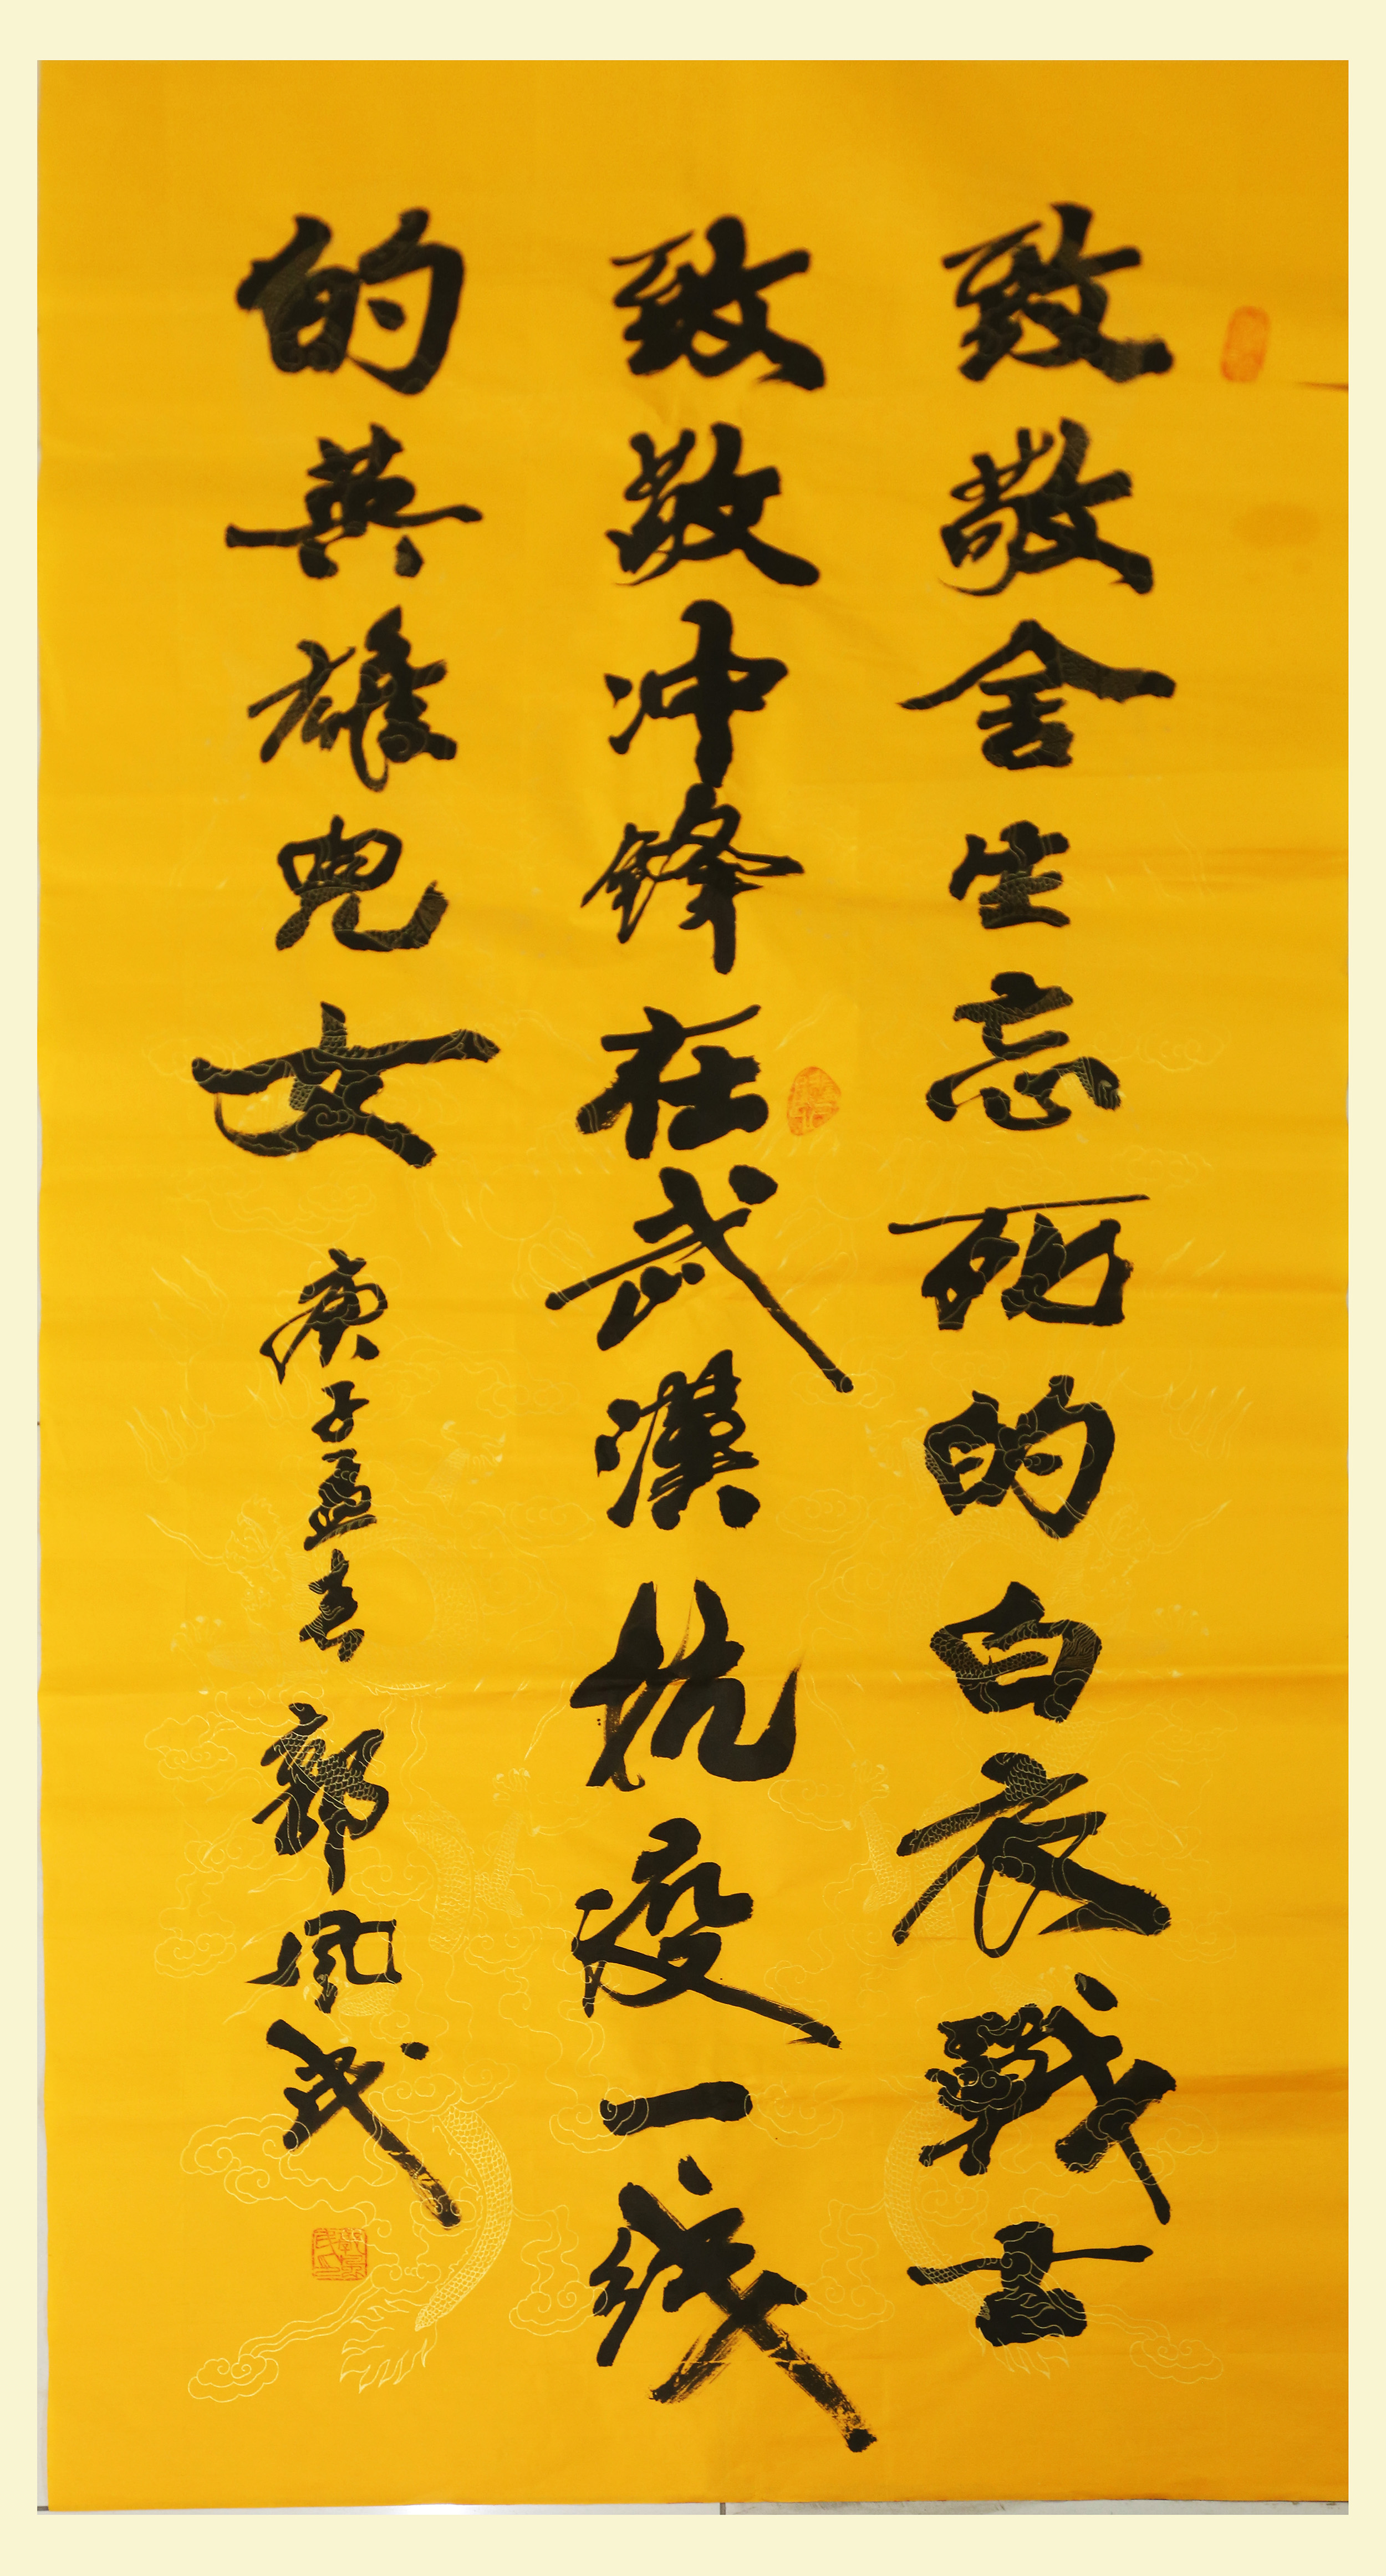 致敬舍生忘死的白衣戰士
致敬冲锋在武漢抗疫一线
的英雄兒女
庚子孟春 郭风武